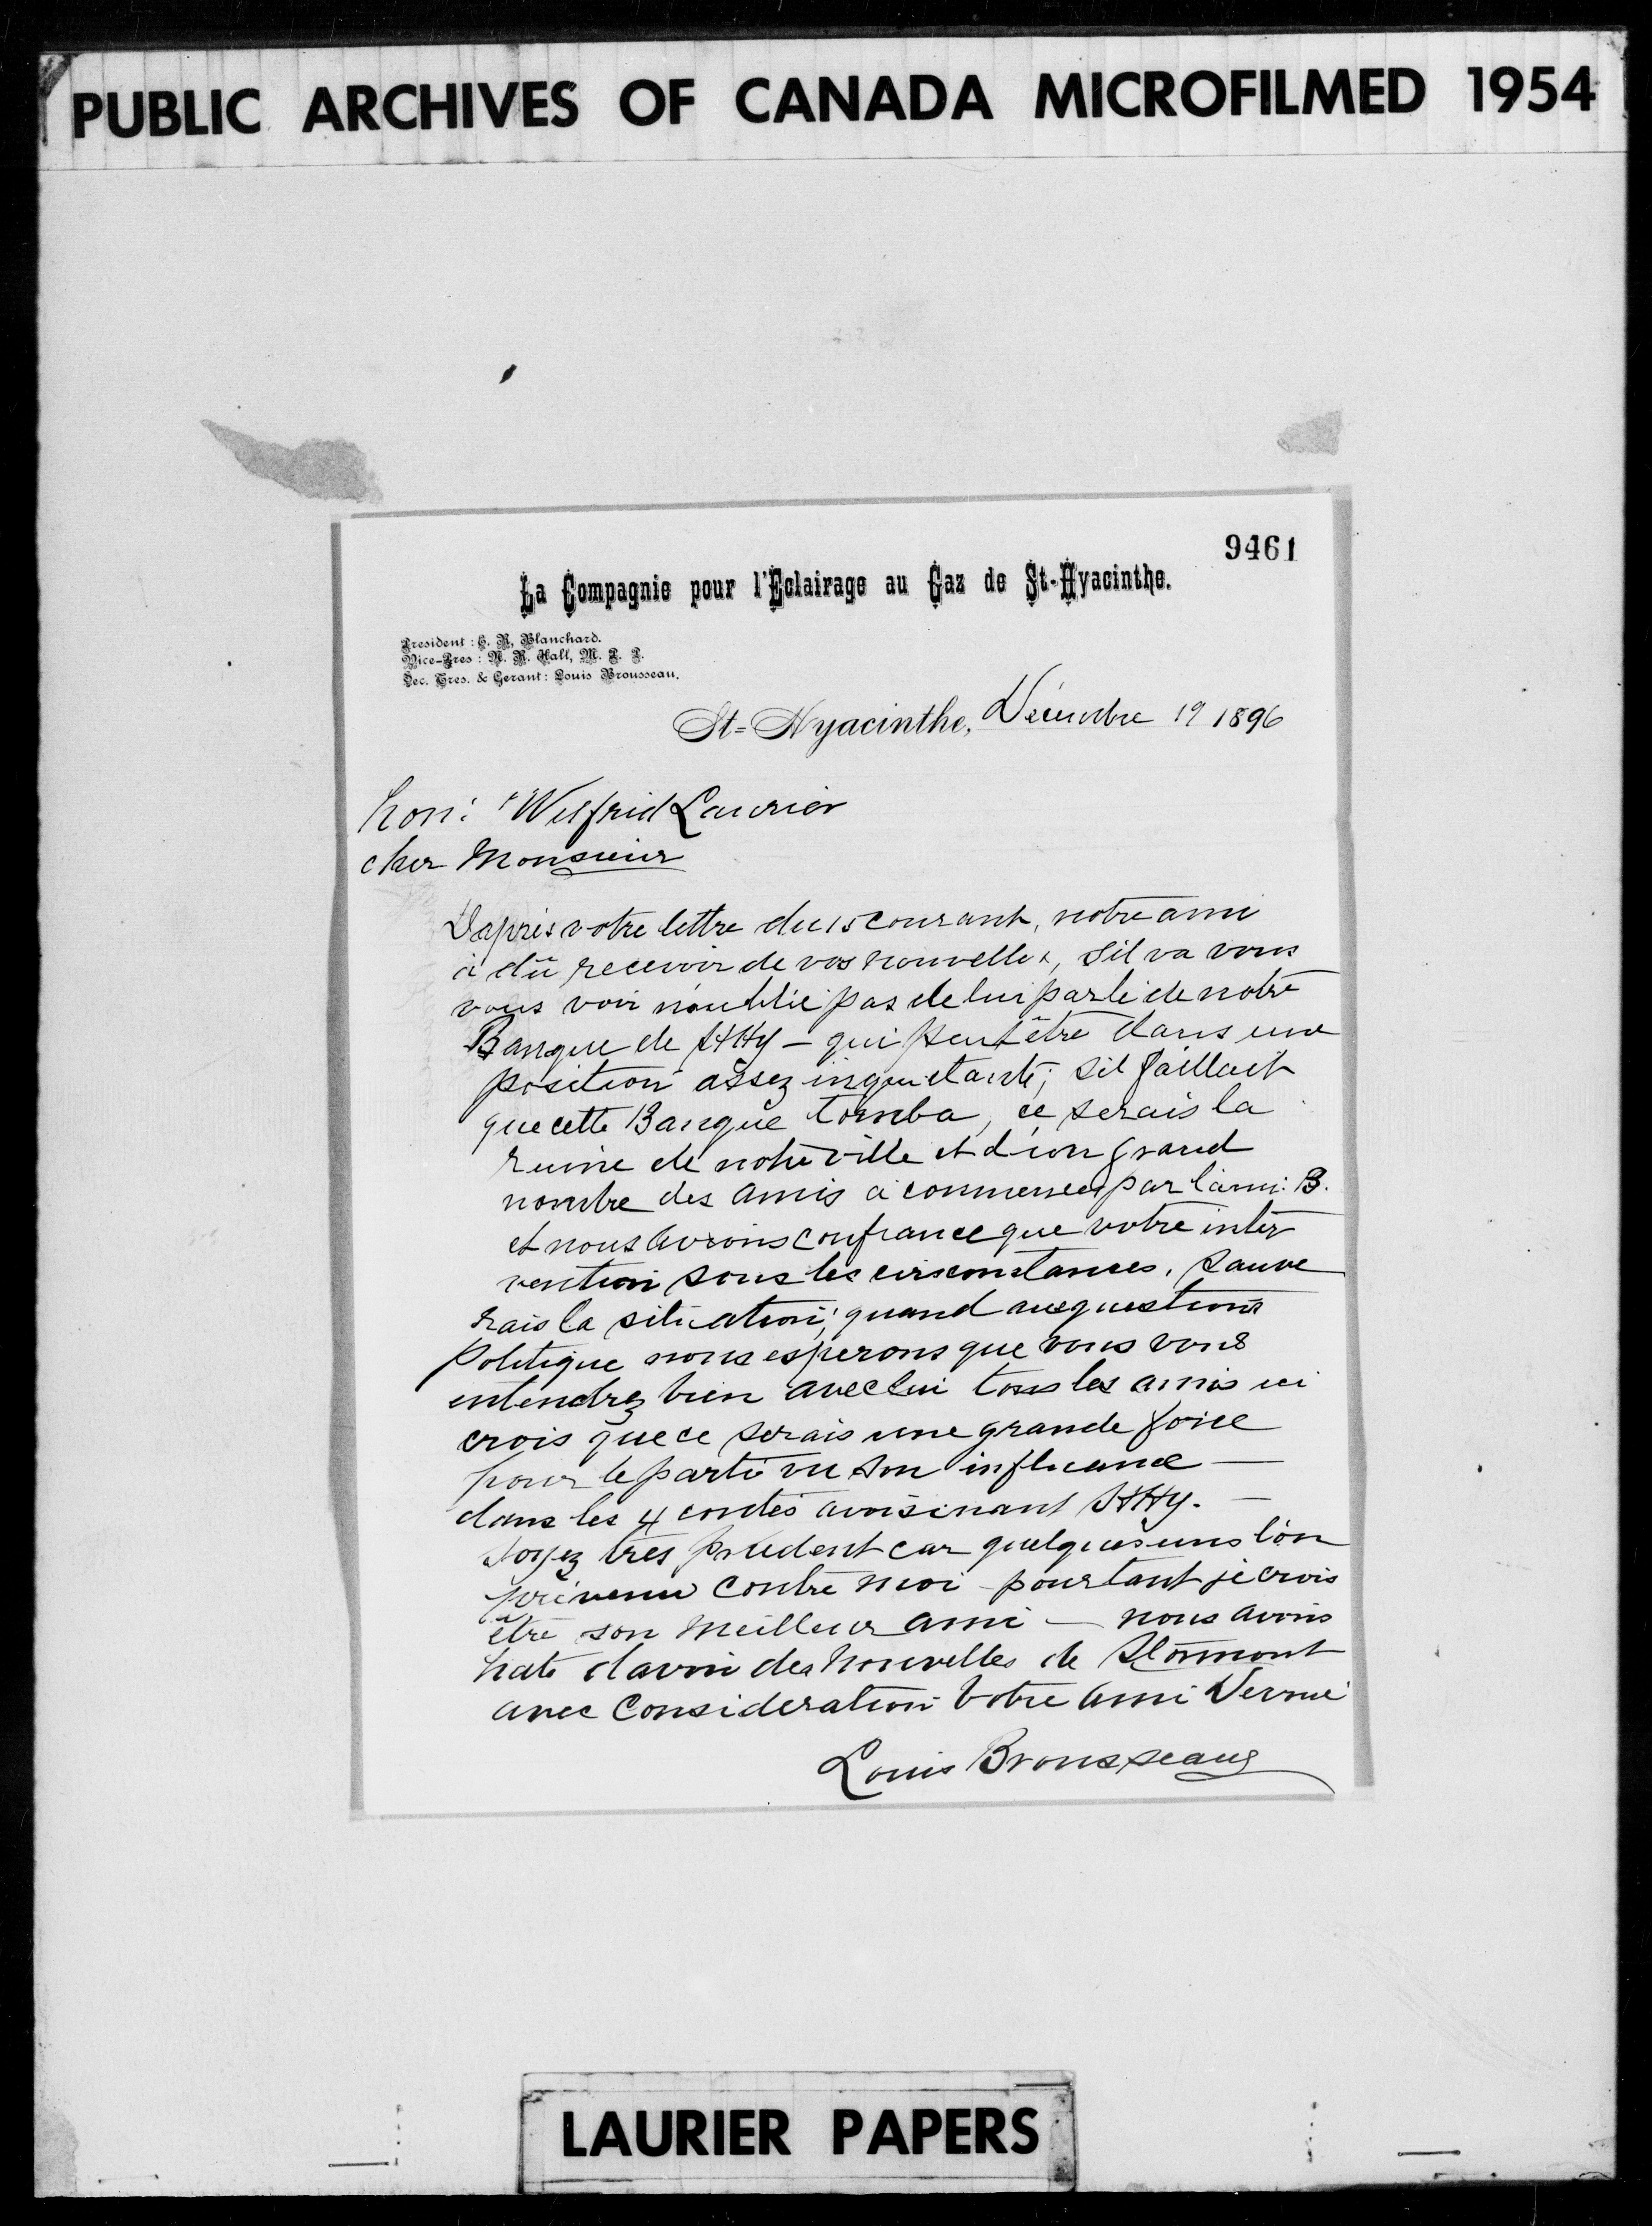 PUBLIC ARCHIVES OF CANADA MICROFILMED 1954
9461
La Compagnie pour l'Eclairage au Gaz de St-Hyacinthe.
President : E. R, Blanchard.
Vice-Pres : N. R. Hall, M. P. P.
Sec. Tres. & Gerant: Louis Brousseau.
St-Hyacinthe, Décembre 19 1896
hon: Wilfrid Laurier
cher Monsieur
D'après votre lettre du 15 courant, notre ami
à dû recevoir de vos nouvelles, Sil va vous
vous voir n'oublié pas de lui parlé de notre
Banque de StHy - qui peut être dans une
position assez inquietante; Sil faillait
que cette Banque tomba, ce serais la
ruine de notre ville et d'un grand
nombre des amis à commencer par l'ami: B.
et nous avons confiance que votre inter
vention sous les circonstances, sauve
rais la situation; quand aux questions
Politique nous esperons que vous vous
entendrez bien avec lui tous les amis ici
crois que ce serais une grande force
pour le parti vu son influence —
dans les 4 contés avoisinant StHy. —
Soyez très prudent car quelques uns l'on
prévenu contre moi - pourtant je crois
être son meilleur ami — nous avons
hate d'avoir des nouvelles de Stormont
avec Consideration Votre ami
Louis Brousseau
LAURIER PAPERS